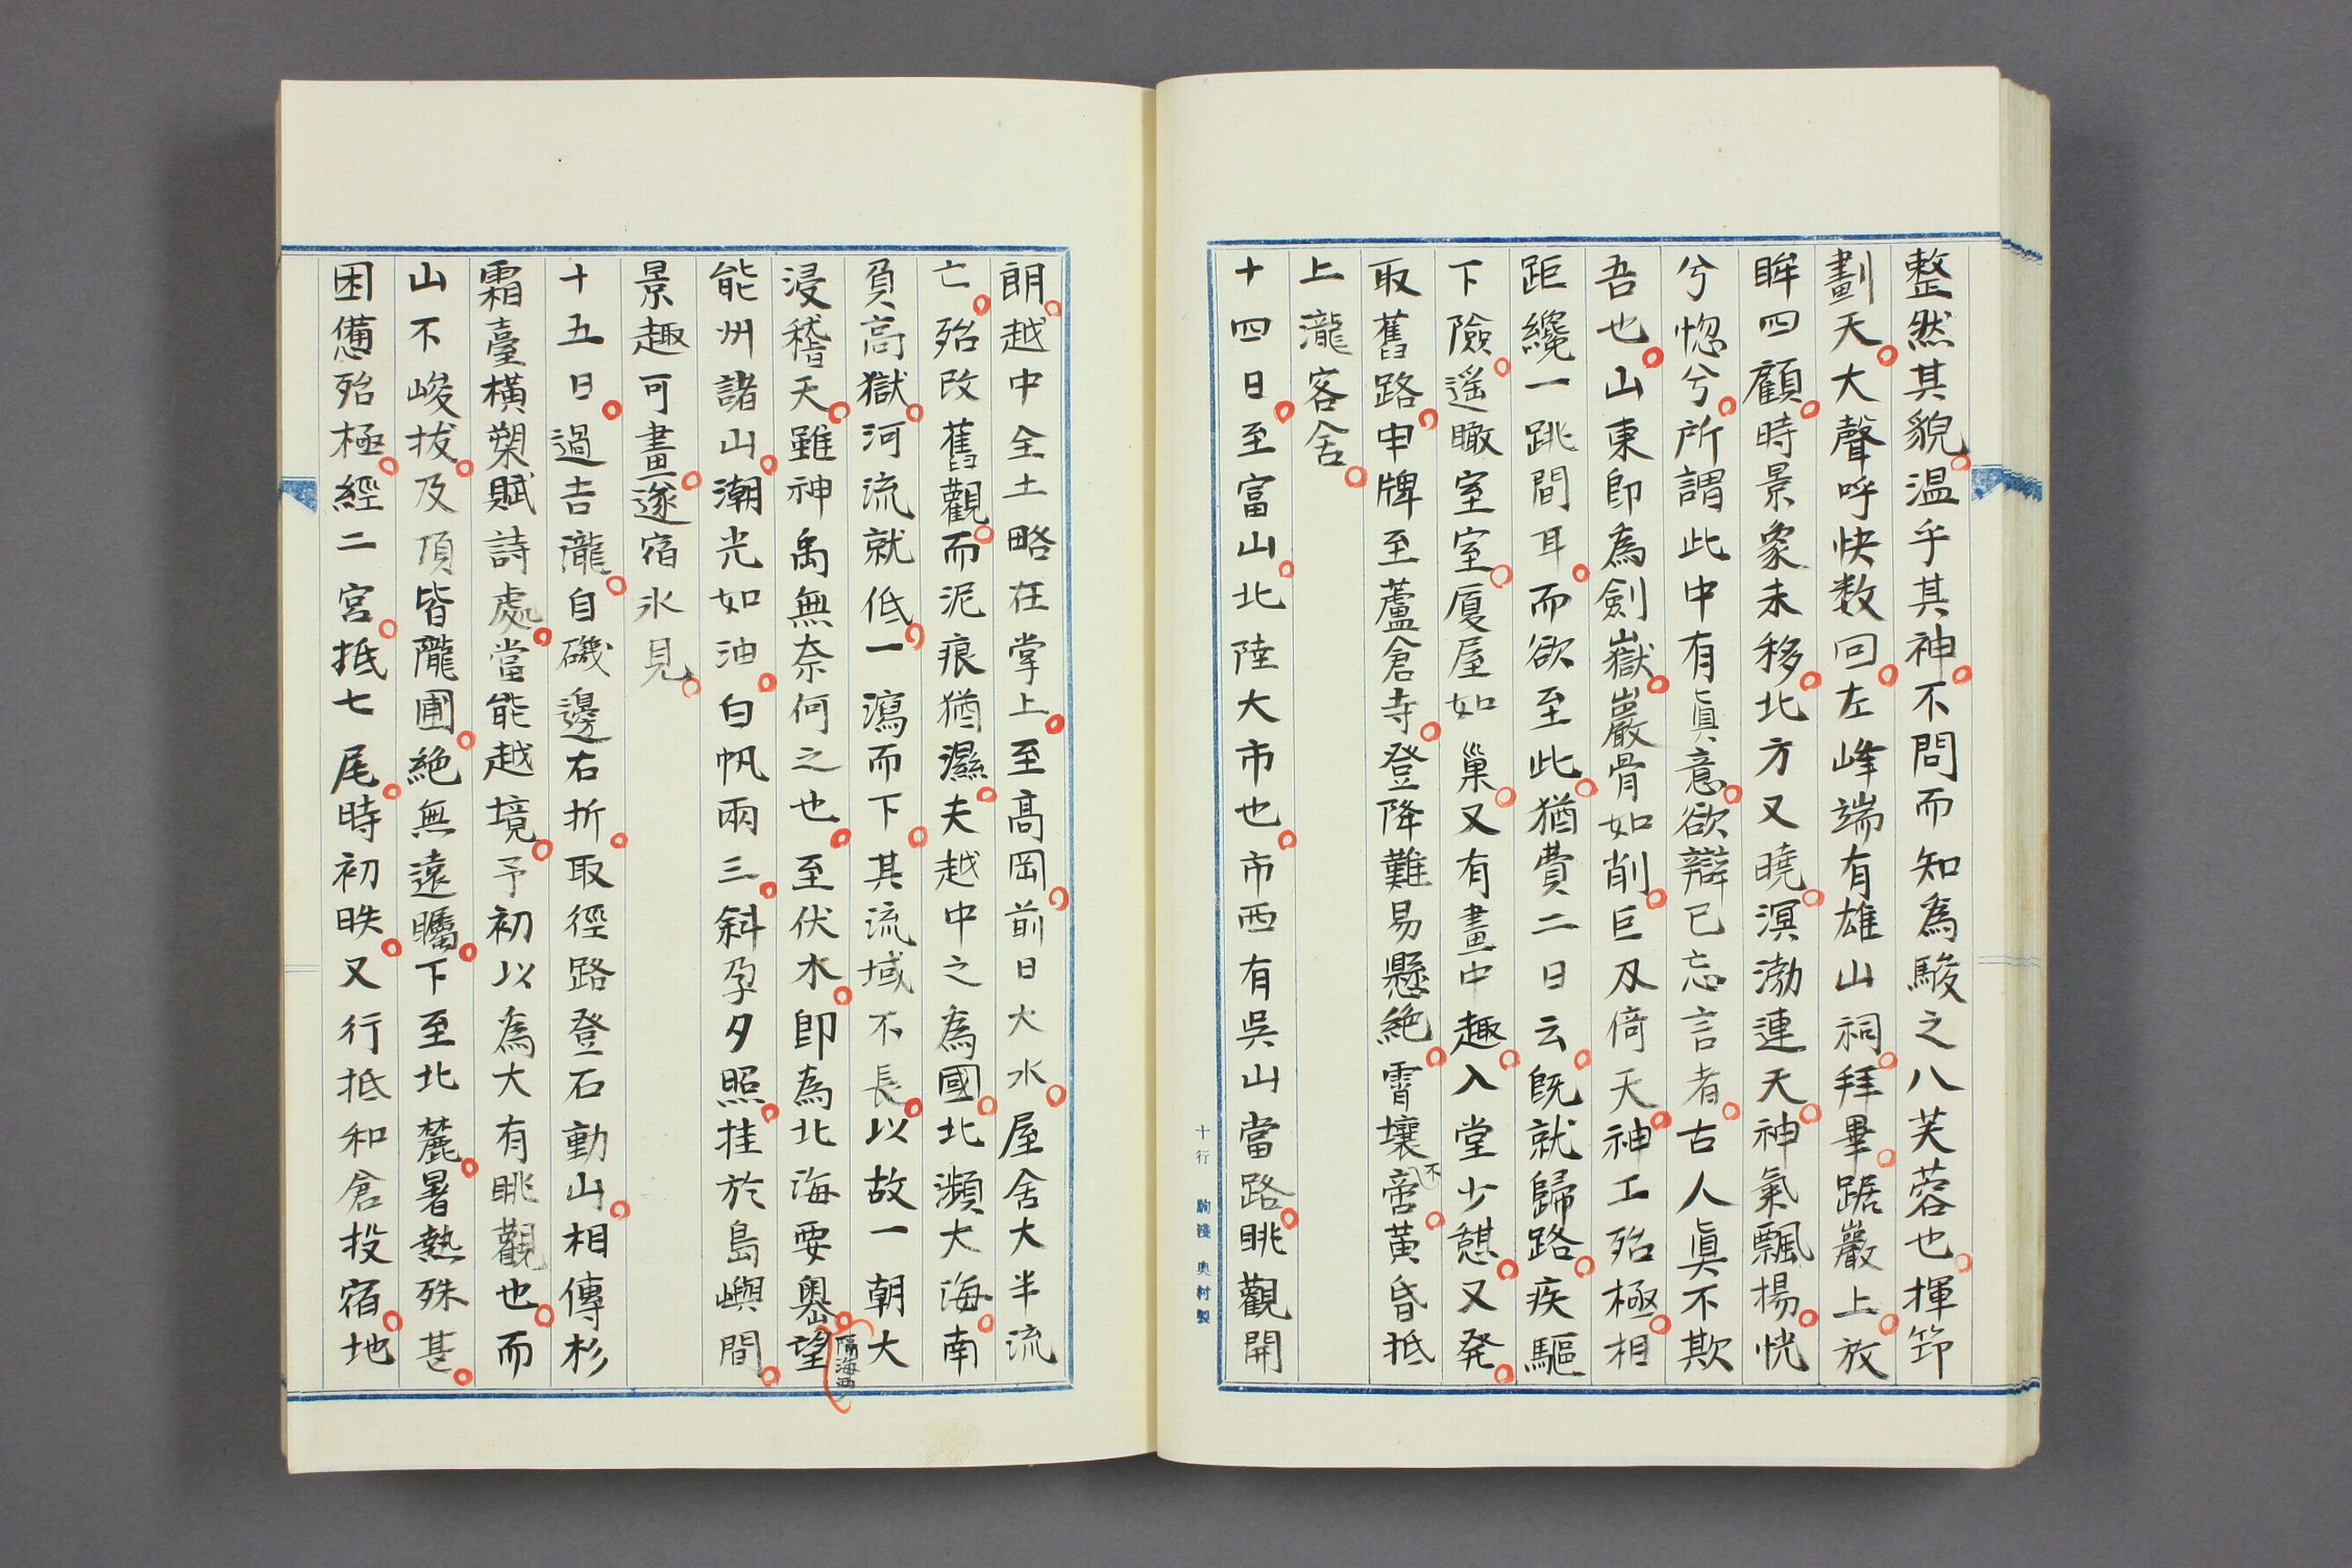 整然其貌温乎其神不問而知為駿之八芙蓉也揮笻
劃天大聲呼快数回左峰端有雄山祠拜畢踞巖上放
眸四顧時景象未移北方又曉溟渤連天神氣飄揚恍
兮惚兮所謂此中有眞意欲辯已忘言者古人眞不欺
吾也山東即為劍嶽巖骨如削巨刄倚天神工殆極相
距纔一跳間耳而欲至此猶費二日云既就歸路疾驅
下險遥瞰室室厦屋如巢又有畫中趣入堂少憩又発
取舊路申牌至蘆倉寺登降難易懸絶霄壤不啻黄昏抵
上瀧客舍
十四日至富山北陸大市也市西有呉山當路眺觀開
十行 奥村製
朗越中全土略在掌上至高岡前日大水屋舍大半流
亡殆改舊觀而泥痕猶濕夫越中之為國北瀕大海南
負高獄河流就低一瀉而下其流域不長以故一朝大
浸稽天雖神禹無奈何之也至伏木即為北海要奥隔海西望
能州諸山潮光如油白帆兩三斜孕夕照挂於島嶼間
景趣可畫遂宿氷見
十五日過吉瀧自磯邊右折取徑路登石動山相傳杉
霜臺横槊賦詩處當能越境予初以為大有眺觀也而
山不峻拔及頂皆隴圃絶無遠矚下至北麓暑熱殊甚
困憊殆極經二宮抵七尾時初昳又行抵和倉投宿地